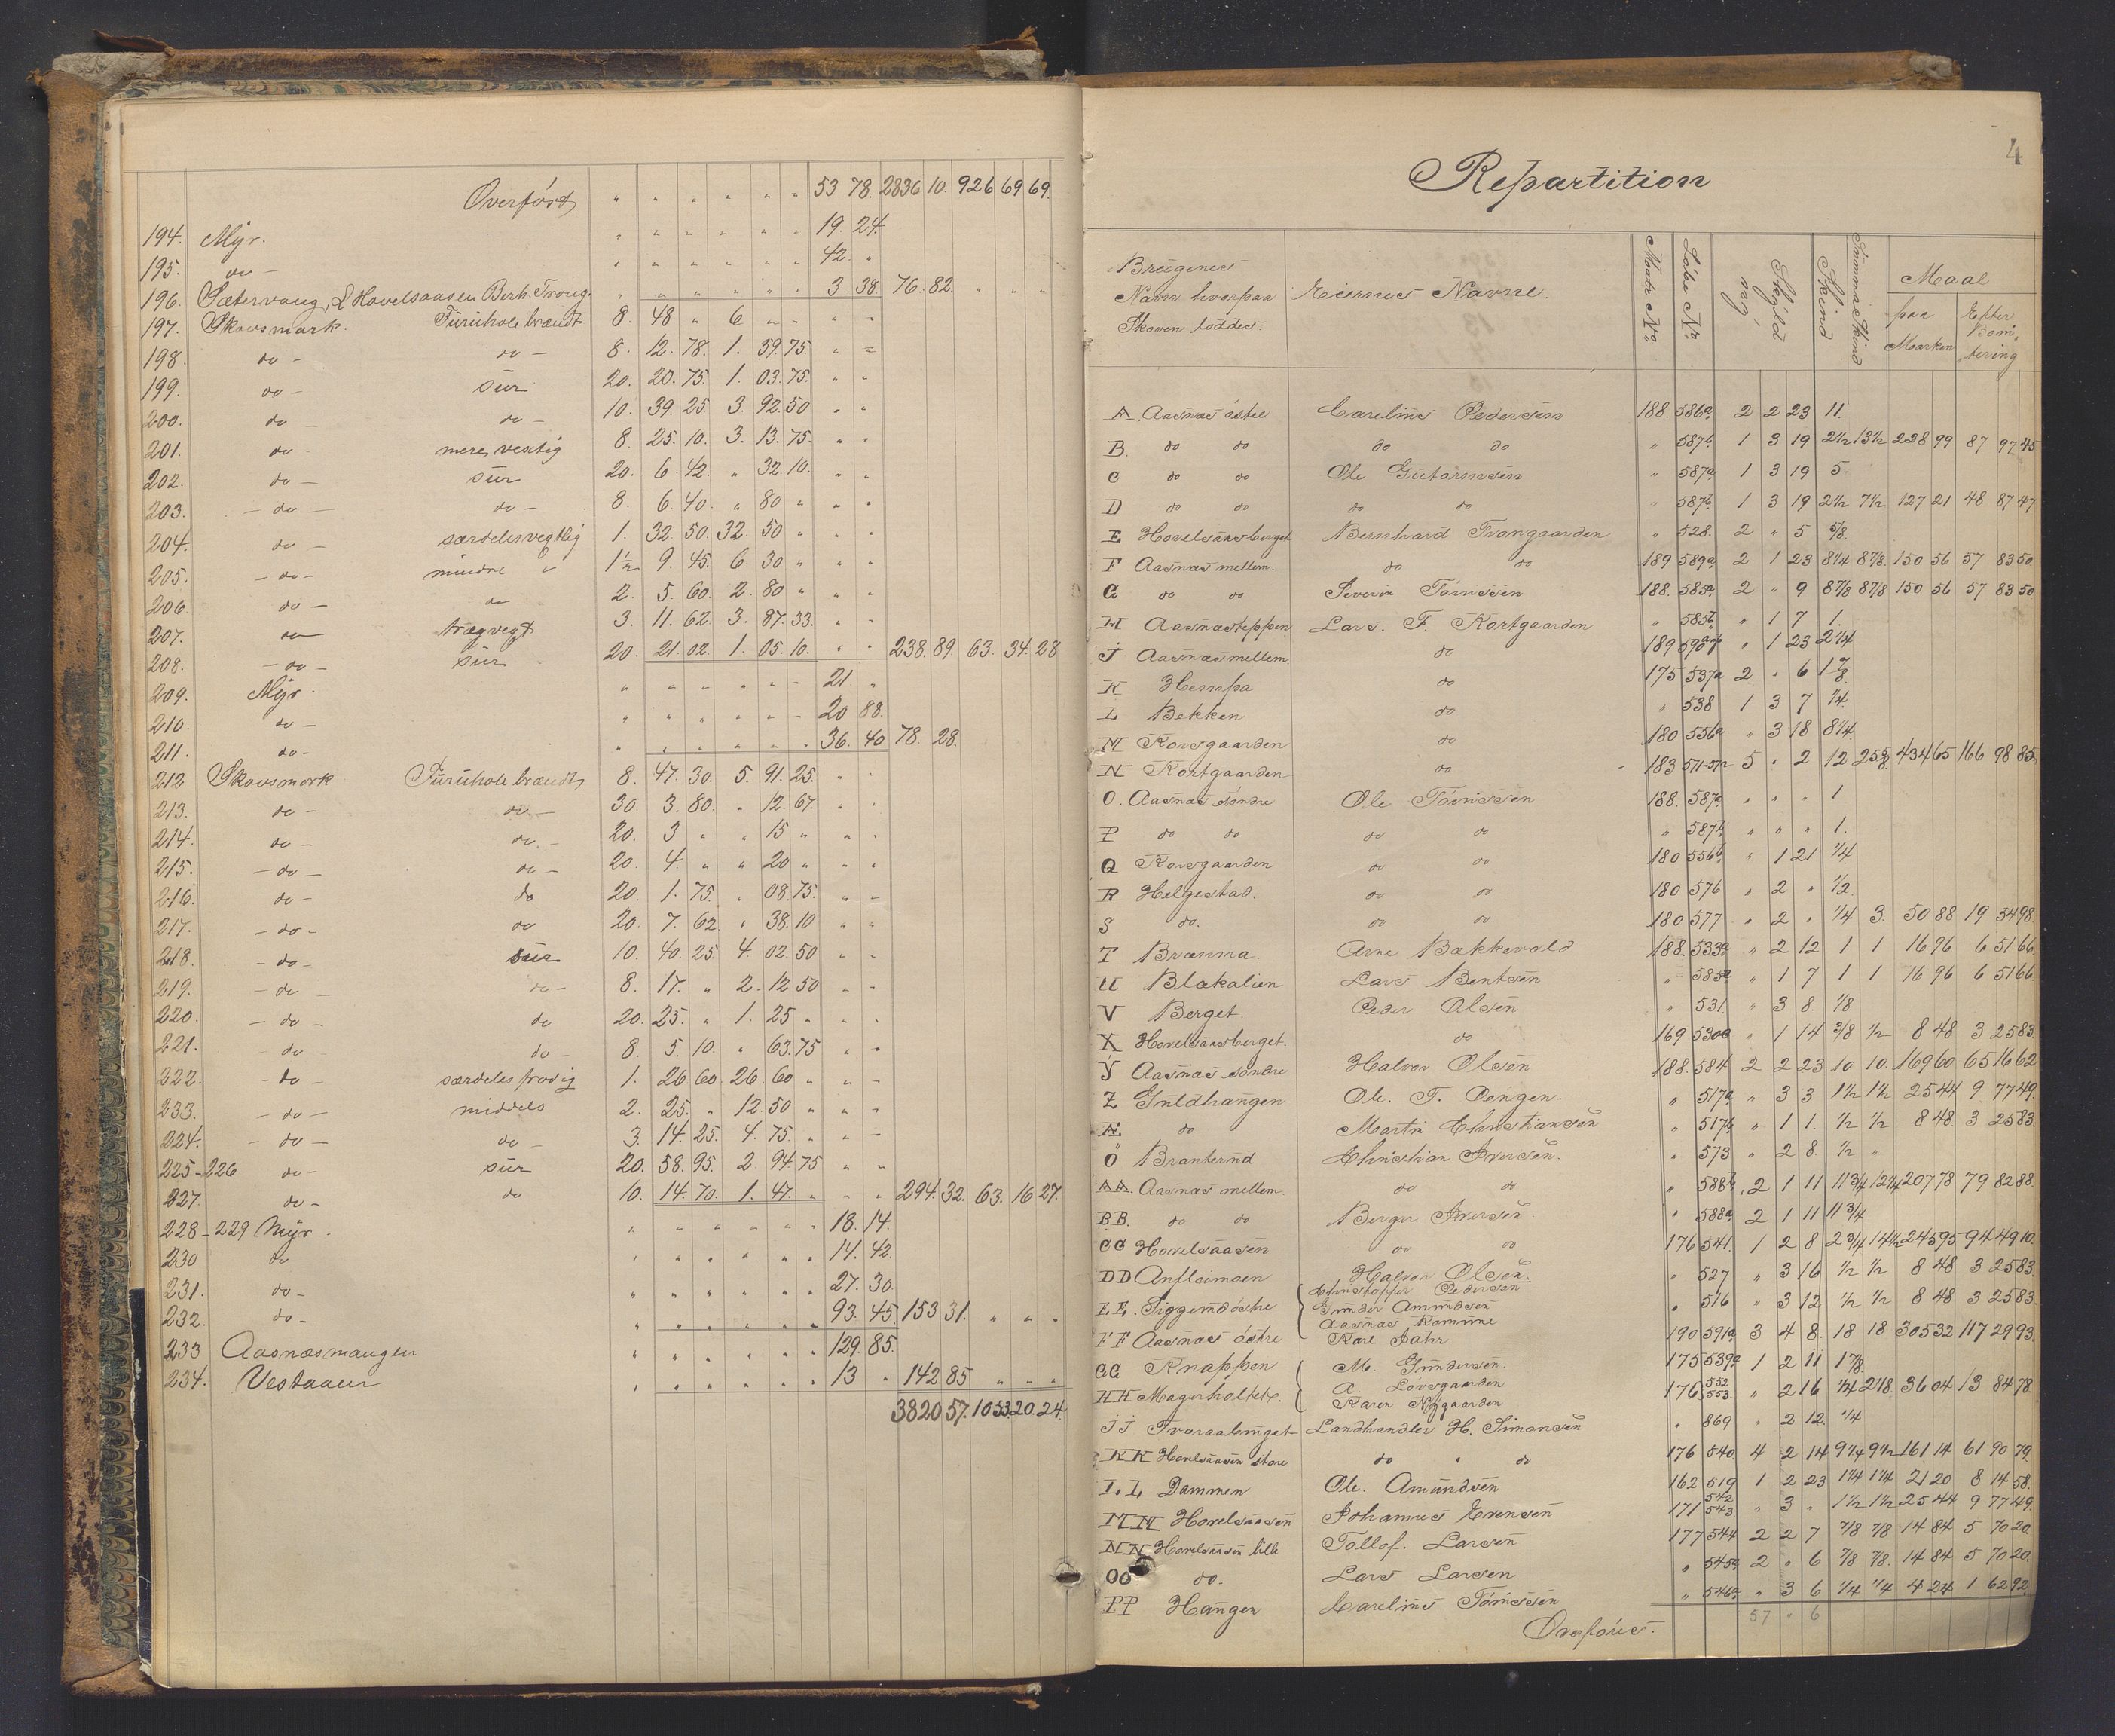 Overført „ „ „ „ „ „ 53 78. 2836 10. 926 69 69.
194. Myr. „ „ „ „ „ „ 19. 24.
195. do - „ „ „ „ „ „ 42. „
196. Sætervang, L. Hovelsaasen Berh. Trong. „ „ „ „ „ „ 3. 38. 76. 82. „ „ „
197. Skovsmark. Furuhole brændt 8. 48 „ 6 „ „ „ „
198. do - do - 8. 12. 78. 1. 39. 75 „ „
199. do - sur 20. 20. 75. 1. 03. 75. „ „
200. do - do - 10. 39. 25 3. 92. 50 „ „
201. do - mere vextlig 8. 25. 10. 3. 13. 75. „ „
202. do - sur 20. 6. 42. „ 32. 10. „ „
203. - do - do - 8. 6. 40. „ 80 „ „ „
204. do - særdeles vegtlig 1. 32. 50. 32. 50 „ „ „
205. - do - mindre „ 1½ 9. 45. 6. 30 „ „ „
206. do - do 2. 5. 60. 2. 80 „ „ „
207. do trægvegt 3. 11. 62. 3. 87. 33. „ „
208. - do - sur 20. 21. 02. 1. 05. 10. „ „ 238. 89. 63. 34. 28
209. Myr. „ „ „ „ „ „ 21 „
210. do - „ „ „ „ „ „ 20 88.
211. do - „ „ „ „ „ „ 36. 40 78. 28.
212 Skovsmark Furuhole brændt 8. 47. 30. 5. 91. 25. „ „
213. do - do. - 30. 3. 80. „ 12. 67. „ „
214. do - do. - 20. 3 „ „ 15 „ „ „
215. - do - do - 20. 4. „ „ 20 „ „ „
216. do - do 20. 1. 75. „ 08. 75. „ „
217. - do - do 20. 7. 62. „ 38. 10 „ „
218. - do - sur 10. 40. 25. 4. 02. 50 „ „
219. - do - do - 8. 17. „ 2. 12 50 „ „
220. - do - do 20. 25. „ 1. 25 „ „ „
221. - do do - 8. 5. 10. „ 63. 75 „ „
222. - do - særdeles frodig 1. 26. 60. 26. 60 „ „ „
233. - do - middels 2. 25. „ 12. 50 „ „ „
224. - do - do - 3. 14. 25. 4. 75. „ „ „
225-226 do - sur 20. 58. 95. 2. 94. 75 „ „
227. do - do 10. 14. 70. 1. 47. „ „ „ 294. 32. 63. 16 27.
228-229 Myr. „ „ „ „ „ „ 18. 14.
230 do „ „ „ „ „ „ 14. 42.
231. do - „ „ „ „ „ „ 27. 30.
232. do - „ „ „ „ „ „ 93. 45 153 31. „ „ „
233 Aasnæsmangen „ „ „ „ „ „ 129. 85.
234. Vestaaen „ „ „ „ „ „ 13 „ 142. 85 „ „ „
3820 57. 1053. 20. 24
4
Repartition
Brugenes Navn hvorpaa Skoven loddes.
Eiernes Navne.
Matr No.
Løbe No.
Skyld
mrk
Skind
Summa Skind
Maal
paa Marken
Efter Bonitering
A. Aasnæs østre Careline Pedersen 188. 586a 2 2 23 11.
B. do do do do „ 587b 1 3 19 2½ 13½ 228 99 87 97 45
C do do Ole Gutormsen „ 587a 1 3 19 5.
D do do do do „ 587b 1 3 19 2½ 7½ 127 21 48 87 47
E Hovelsaasberget Bernhard Trongaarden „ 528. 2 „ 5 5/8.
F Aasnæs mellem. do do 189 589a 2 1 23 8¼ 8 7/8 150 56 57 83 50.
G do do Severin Tønissen 188. 585a 2 „ 9 8 7/8 8 7/8 150 56 57 83 50
H Aasnæsteppen Lars. F. Kortgaarden „ 585b „ 1 7 1.
J Aasnæs mellem do 189 590b „ 1 23 2¼
K Hempa do 175 537a 2 „ 6 1 7/8.
L Bekken do „ 538 1 3 7 ¼.
M Korsgaarden do 180 556a „ 3 18 8¼.
N Kortgaarden do 183 571-572 5 „ 2 12 25 5/8. 434 65 166 98 85.
O. Aasnæs søndre Ole Tønissen 188. 587a „ „ „ 1
P do do do do „ 587b „ „ „ 1.
Q Korsgaarden do do 180 556b „ 1 21 ¼.
R Helgestad. do do 180 576 „ 2 „ ½.
S do. do do 180 577 „ 2 „ ¼ 3. 50 88 19 54 98.
T Brænna. Arne Bækkevold 188. 533a „ 2 12 1 1 16 96 6 51 66
U Blækalien Lars Bentsen „ 585a „ 1 7 1 1 16 96 6 51 66
V Berget. Peder Olsen „ 531. „ 3 8. 1/8
X Hovelsaasberget. do 169 530a „ 1 14 3/8 ½ 8 48 3 25 83.
Y Aasnæs søndre Halvor Olsen 188. 584 2 2 23 10 10. 169 60 65 16 62
Z Guldhaugen Ole. T. Oengen. „ 517a „ 3 3 1½ 1½ 25 44 9. 77 49.
Æ do Martin Christiansen „ 517b „ 1 1. ½ ½ 8 48 3 25 83.
Ö Branterud Christian Iversen. „ 573 „ 2 8. ½ „
AA. Aasnæs mellem. do do „ 588b 2 1 11 11¾ 12¼ 207 78 79 82 88.
BB. do do Berger Iversen. „ 588a 2 1 11 11¾
CC Hovelsaasen do do 176 541. 1 2 8 2¾ 14½ 245 95 94 49 10.
DD Anfloimoen Halvor Olsen. „ 527 „ 3 16 ½ ½ 8 48 3 25 83.
Christoffer Pedersen
EE. Siggerud østre Gunder Amundsen „ 516 „ 3 12 ½ ½ 8 48 3 25 83.
Aasnæs Komune
FF Aasnæs østre Karl Jahr 190 591a 3 4 8. 18 18 305 32 117 29 93.
GG Knappen M. Gundersen. 175 539a 1 2 11 1 7/8
HH Magerholtet. A. Løvsgaarden 176 552 553. „ 2 16 ¼ 2 1/8. 36 04 13 84 78.
Karen Nygaarden
JJ Tvoraabinget Landhandler H. Simonsen „ 869 „ 2 12. ¼
KK Hovelsaasen store do „ do 176 540 4 2 14 9¼ 9½ 161 14 61 90 79.
LL Dammen Ole. Amundsen 162 519 1 2 23 1¼ 1¼ 21 20 8 14 58.
MM Hovelsaasen Johannes Evensen 171 542 543 „ 3 „ 1½ 1½ 25 44 9 77 49.
NN Hovelsaasen lille Tollef. Larsen 177 544 2 2 7 7/8 7/8 14 84 5 70 20.
OO do. Lars Larsen „ 545a 2 „ 6 7/8 7/8. 14 84 5 70 20.
PP Haugen Careline Tønissen „ 546a „ 3 6 ¼ ¼ 4 24 1 62 92.
57 „ 6
Overføres.